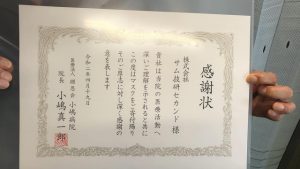 感謝状
株式会社
サム技研セカンド 様
貴社は当院の医療活動へ
深いご理解を示されると共に
この度はマスクをご寄付賜り
そのご厚志に対し深く感謝の
意を表します
令和二年四月十九日
小嶋病院
院長 小嶋真一郎